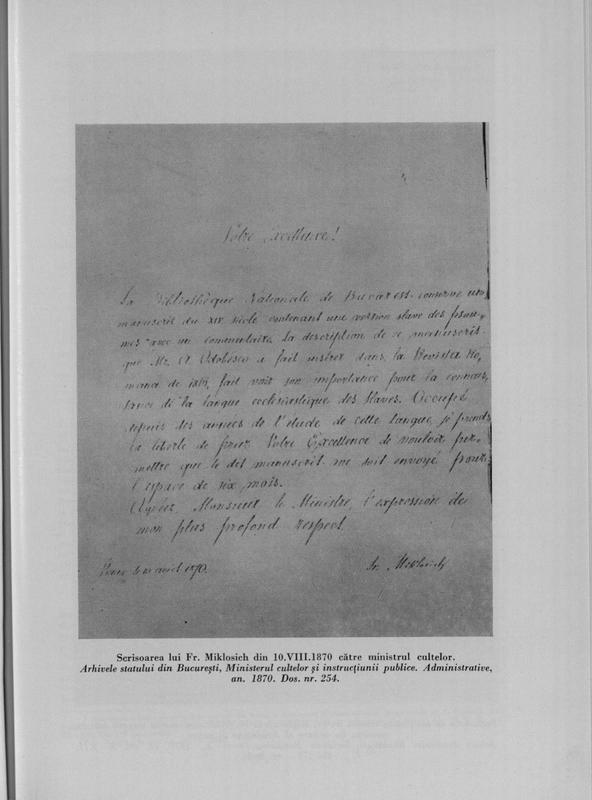 Votre Excellence!
La Bibliothèque Nationale de Bucarest conserve un
manuscrit du XIV siècle contenant une version slave des Psau-
mes avec un commentaire. La description de ce manuscrit
que Mr. A Odobesco a fait insérer dans la Revista Ro,
mana de 1861, fait voir son importance pour la connais,
sance de la langue ecclésiastique des Slaves. Occupé
depuis des années de l'étude de cette langue, je prends
la liberté de prier Votre Excellence de vouloir per-
mettre que le dit manuscrit me soit envoyé pour
l'espace de six mois.
Agréez, Monsieur le Ministre, l'expression de
mon plus profond respect.
le 10 août 1870. Fr. Miklosich
Scrisoarea lui Fr. Miklosich din 10.VIII.1870 către ministrul cultelor.
Arhivele statului din București, Ministerul cultelor și instrucțiunii publice. Administrative,
an. 1870. Dos. nr. 254.